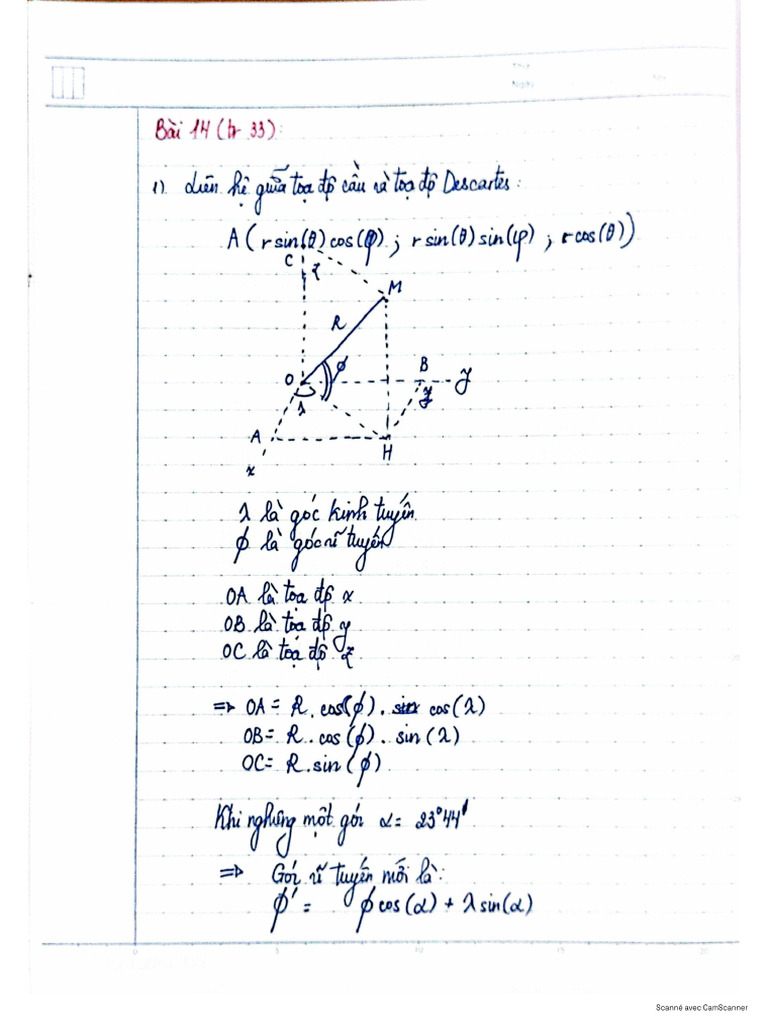 Bài 14 (tr 33):
1) Liên hệ giữa toạ độ cầu và tọa độ Descartes:
A(r sin(θ) cos(φ) ; r sin(θ) sin(φ) ; r cos(θ))
C z
M
R
O ϕ B y
λ y
A H
x
λ là góc kinh tuyến
ϕ là góc vĩ tuyến
OA là tọa độ x
OB là tọa độ y
OC là toạ độ z
=> OA = R. cos(ϕ). cos(λ)
OB = R. cos(ϕ). sin(λ)
OC = R. sin(ϕ)
Khi nghiêng một góc α = 23°44'
=> Góc vĩ tuyến mới là:
ϕ' = ϕ cos(α) + λ sin(α)
Scanné avec CamScanner